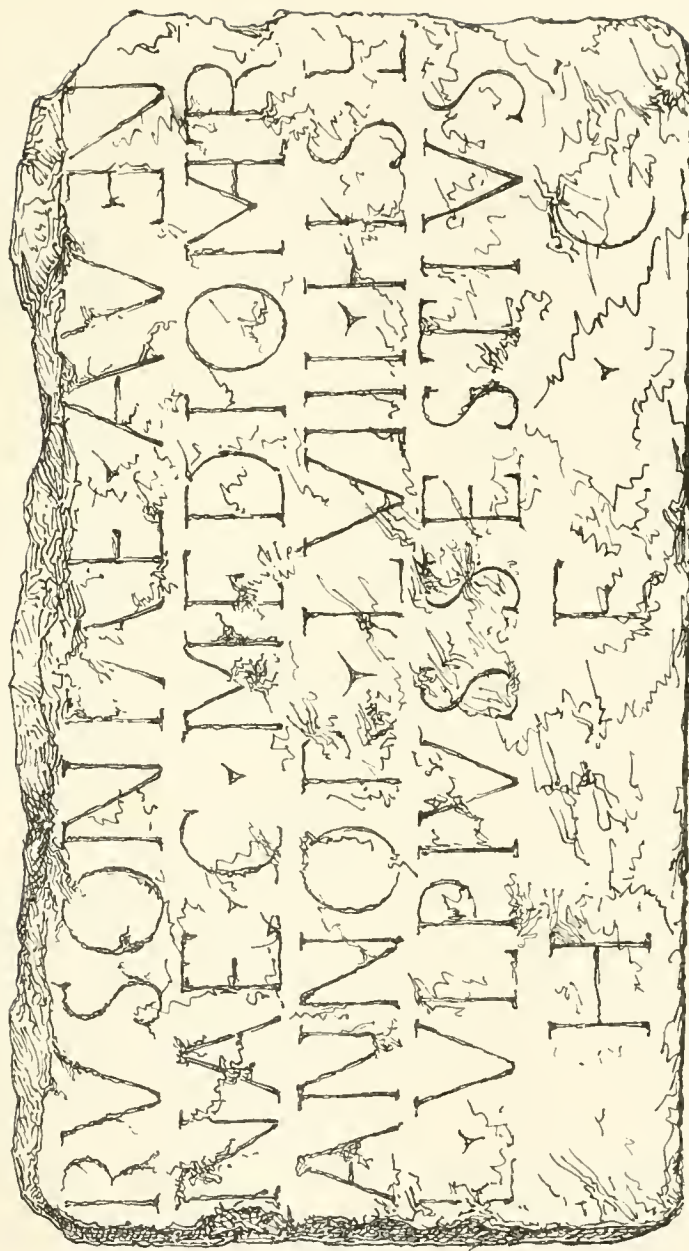 RVSONIAE·AVEN
INAE·C·MEDIOMTR
ANNOR·LVIII H·S·E
L·VLPIVS SESTIVS
H F·C